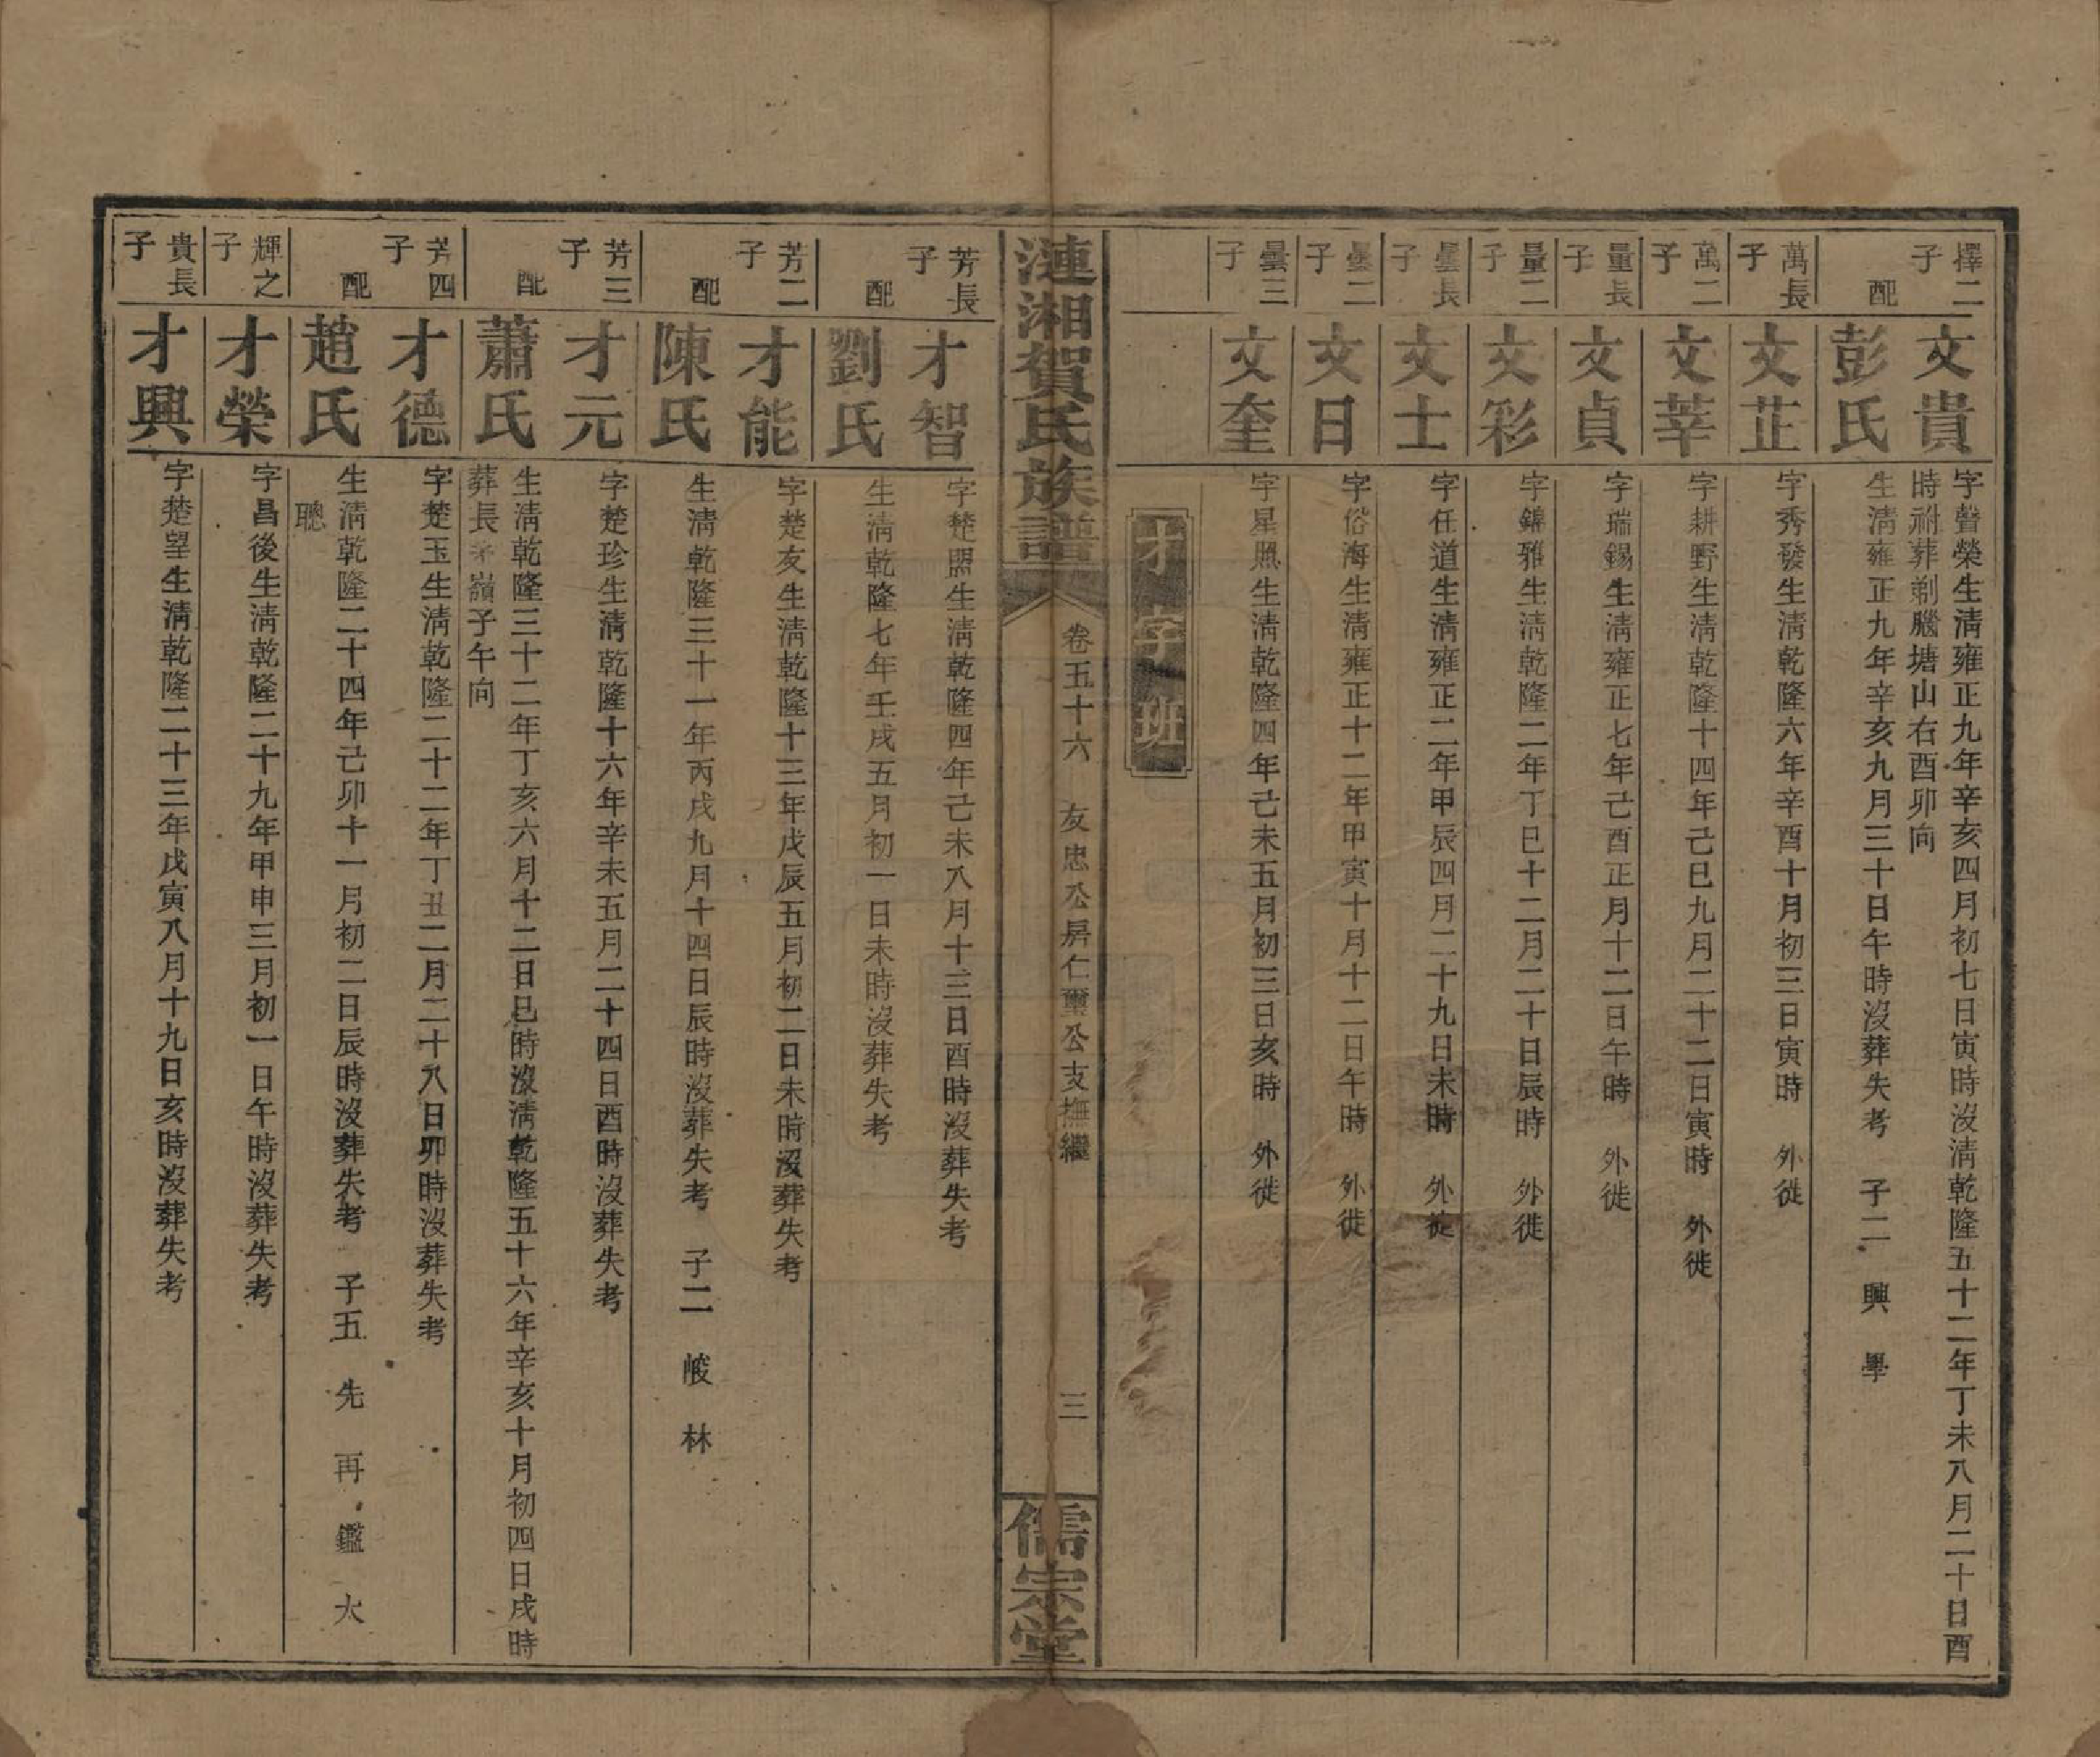 擇二子
文貴
字聲榮生清雍正九年辛亥四月初七日寅時沒清乾隆五十二年丁未八月二十日酉
時祔葬剃腦塘山右酉卯向
配
彭氏
生清雍正九年辛亥九月三十日午時沒葬失考 子二 興 學
萬長子
文芷
字秀發生清乾隆六年辛酉十月初三日寅時 外徙
萬二子
文莘
字耕野生清乾隆十四年己巳九月二十二日寅時 外徙
量長子
文貞
字瑞錫生清雍正七年己酉正月十二日午時 外徙
量二子
文彩
字錦雅生清乾隆二年丁巳十二月二十日辰時 外徙
曇長子
文士
字任道生清雍正二年甲辰四月二十九日未時 外徙
曇二子
文日
字俗海生清雍正十二年甲寅十月十二日午時 外徙
曇三子
文奎
字星照生清乾隆四年己未五月初三日亥時 外徙
才字班
漣湘賀氏族譜
卷五十六 友忠公房仁璽公支撫繼
三
儒宗堂
芳長子
才智
字楚盟生清乾隆四年己未八月十三日酉時沒葬失考
配
劉氏
生清乾隆七年壬戌五月初一日未時沒葬失考
芳二子
才能
字楚友生清乾隆十三年戊辰五月初二日未時沒葬失考
配
陳氏
生清乾隆三十一年丙戌九月十四日辰時沒葬失考 子二 峻 林
芳三子
才元
字楚珍生清乾隆十六年辛未五月二十四日酉時沒葬失考
配
蕭氏
生清乾隆三十二年丁亥六月十二日巳時沒清乾隆五十六年辛亥十月初四日戌時
葬長茅嶺子午向
芳四子
才德
字楚玉生清乾隆二十二年丁丑二月二十八日卯時沒葬失考
配
趙氏
生清乾隆二十四年己卯十一月初二日辰時沒葬失考 子五 先 再 鑑 大
聰
輝之子
才榮
字昌後生清乾隆二十九年甲申三月初一日午時沒葬失考
貴長子
才興
字楚望生清乾隆二十三年戊寅八月十九日亥時沒葬失考